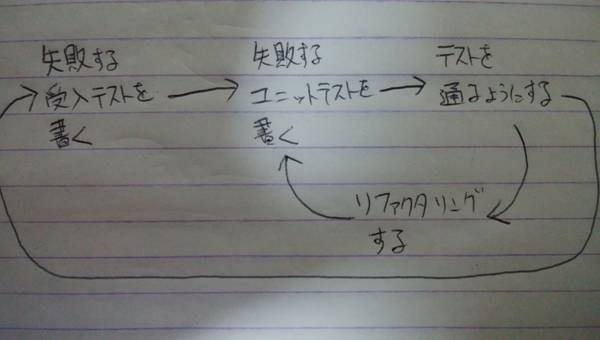 失敗する
受入テストを
書く
失敗する
ユニットテストを
書く
テストを
通るようにする
リファクタリング
する